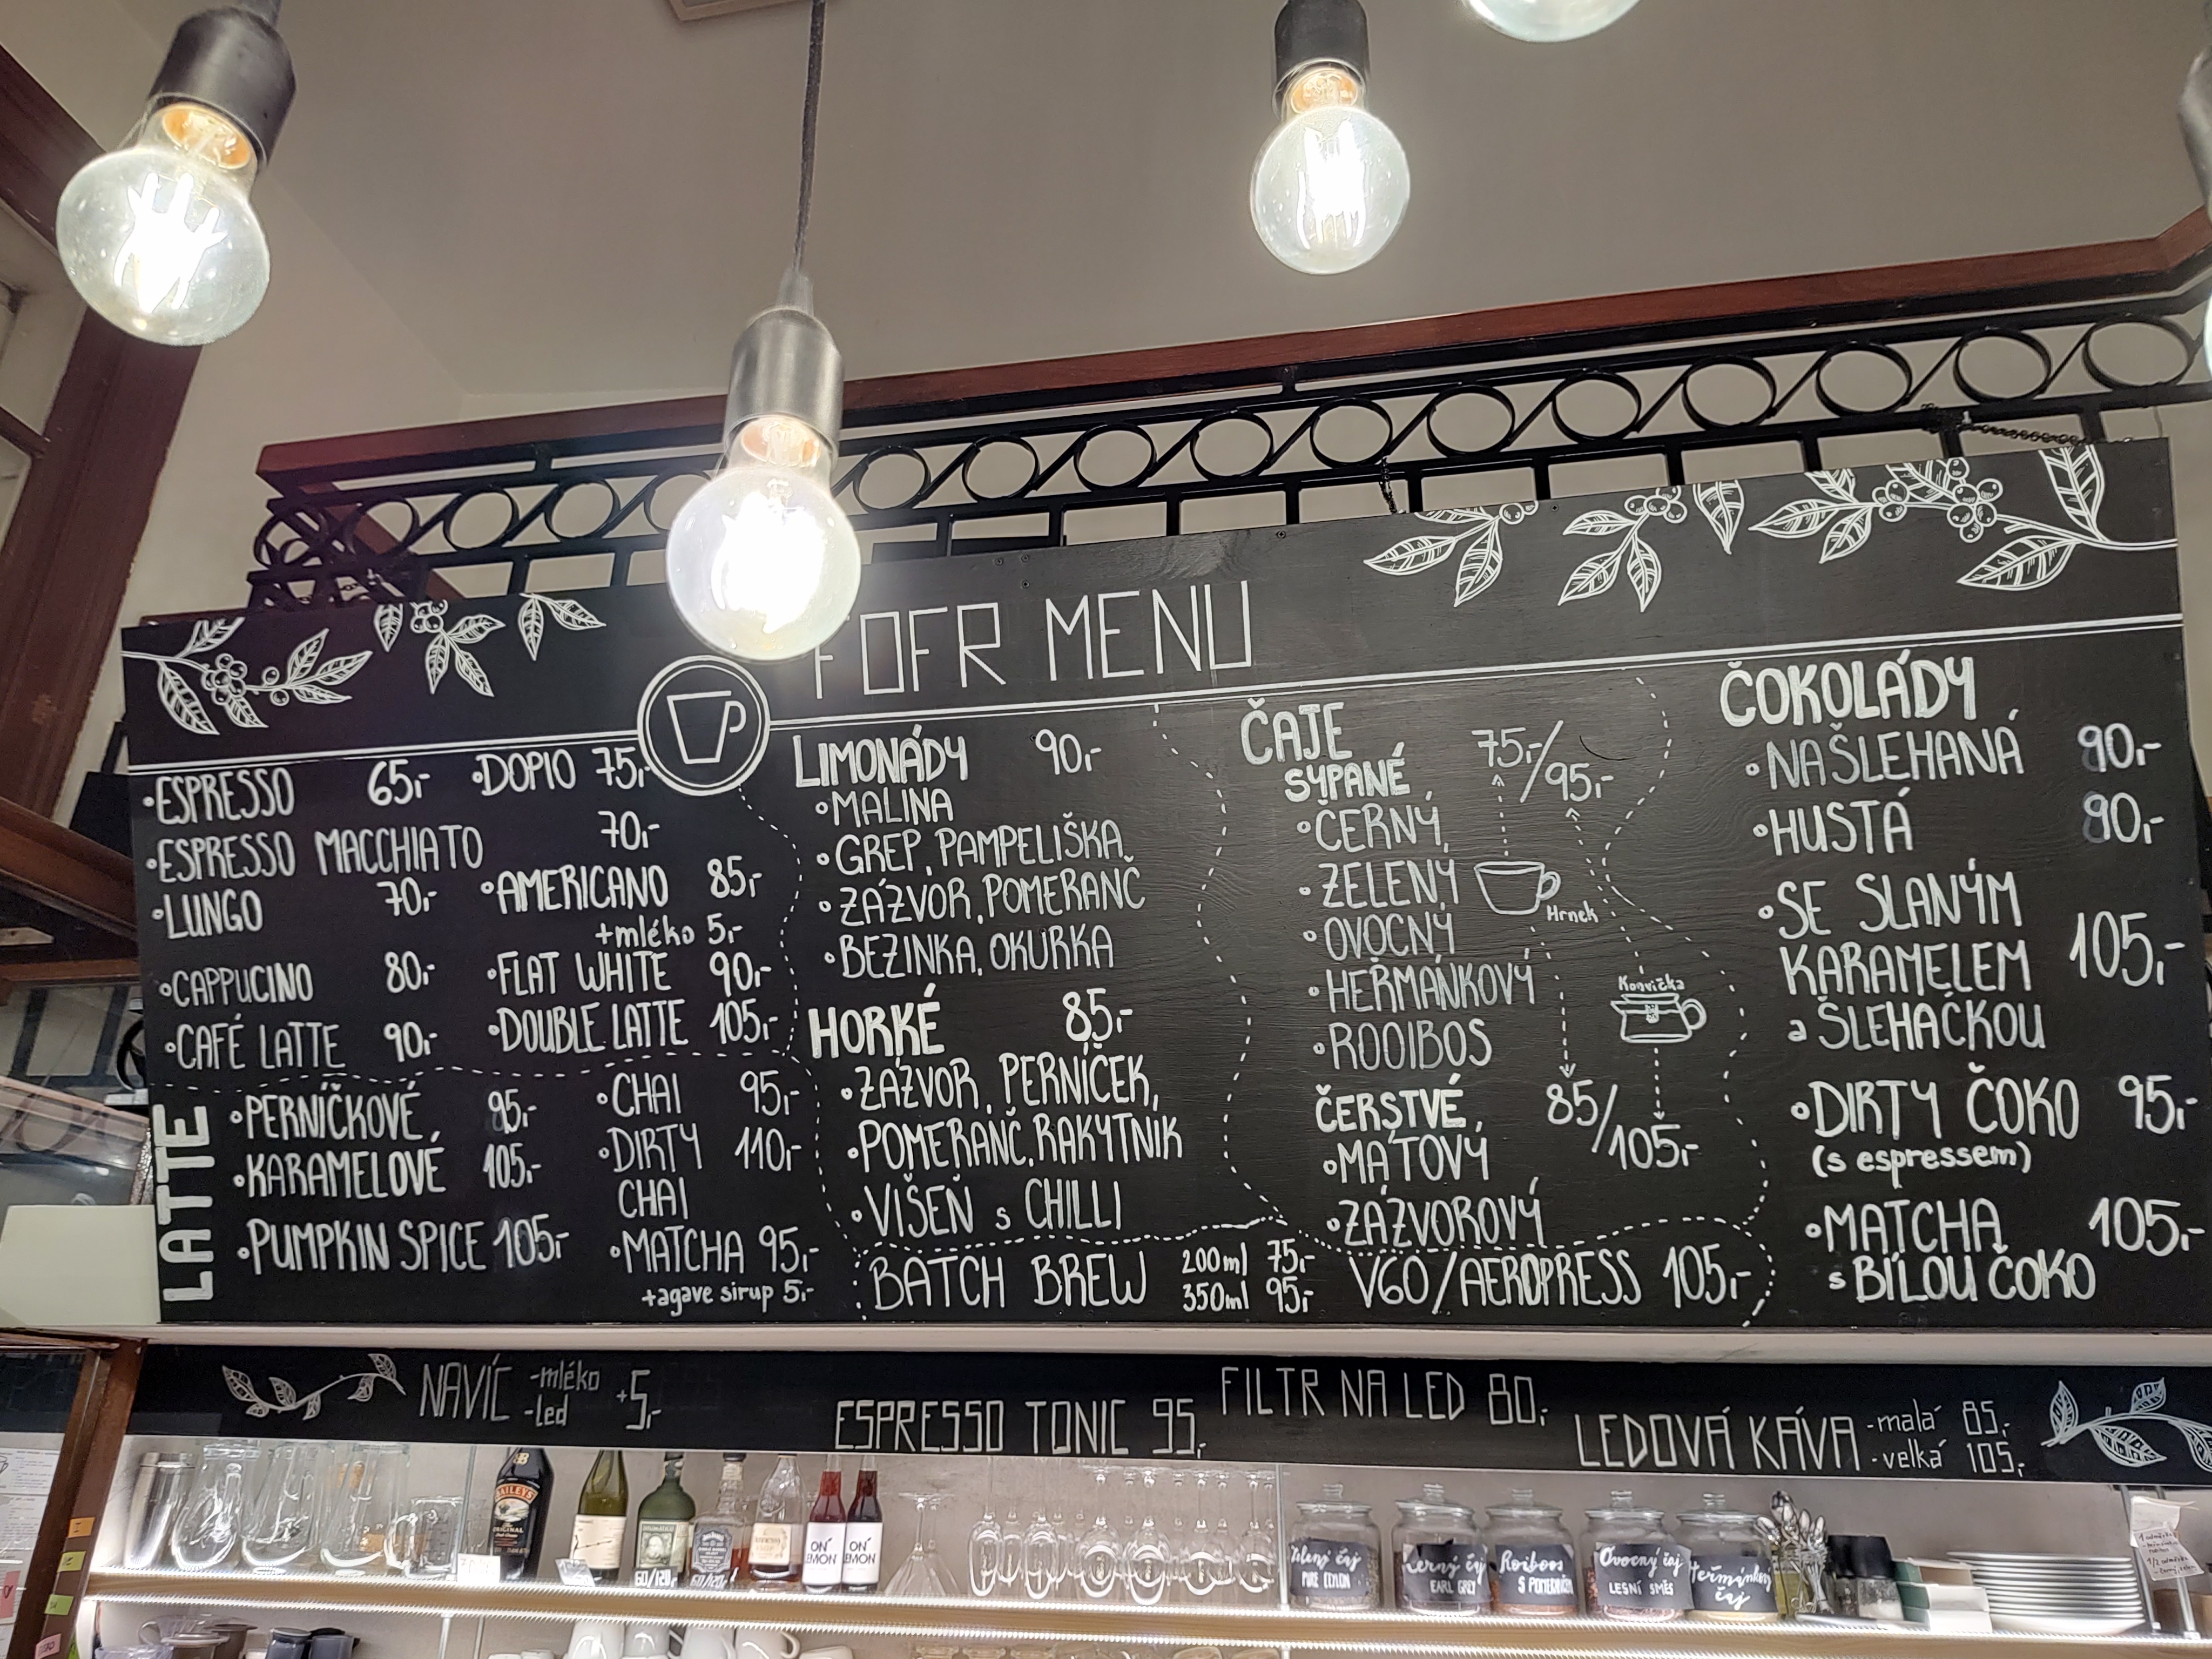 FOFR MENU
•ESPRESSO 65,-
•DOPIO 75,-
•ESPRESSO MACCHIATO 70,-
•LUNGO 70,-
•AMERICANO 85,-
+mléko 5,-
•CAPPUCINO 80,-
•FLAT WHITE 90,-
•CAFÉ LATTE 90,-
•DOUBLE LATTE 105,-
LATTE
•PERNÍČKOVÉ 95,-
•KARAMELOVÉ 105,-
•PUMPKIN SPICE 105,-
•CHAI 95,-
•DIRTY 110,-
CHAI
•MATCHA 95,-
+agave sirup 5,-
LIMONÁDY 90,-
•MALINA
•GREP, PAMPELIŠKA
•ZÁZVOR, POMERANČ
•BEZINKA, OKURKA
HORKÉ 85,-
•ZÁZVOR, PERNÍČEK,
•POMERANČ, RAKYTNÍK
•VIŠEŇ s CHILLI
BATCH BREW
200ml 75,-
350ml 95,-
V60/AEROPRESS 105,-
ČAJE
SYPANÉ 75,-/95,-
•ČERNÝ
•ZELENÝ
Hrnek
•OVOCNÝ
•HEŘMÁNKOVÝ
Konvička
•ROOIBOS
ČERSTVÉ 85/105,-
•MÁTOVÝ
•ZÁZVOROVÝ
ČOKOLÁDY
•NAŠLEHANÁ 90,-
•HUSTÁ 90,-
•SE SLANÝM
KARAMELEM 105,-
a ŠLEHAČKOU
•DIRTY ČOKO 95,-
(s espressem)
•MATCHA 105,-
s BÍLOU ČOKO
NAVÍC -mléko +5,-
-led
ESPRESSO TONIC 95,-
FILTR NA LED 80,-
LEDOVÁ KÁVA -malá 85,-
-velká 105,-
BAILEYS
ORIGINAL
60/120,-
60/120,-
ON LEMON
ON LEMON
Zelený čaj
PURE CEYLON
Černý čaj
EARL GREY
Roiboos
Ovocný čaj
LESNÍ SMĚS
Heřmánkový
čaj